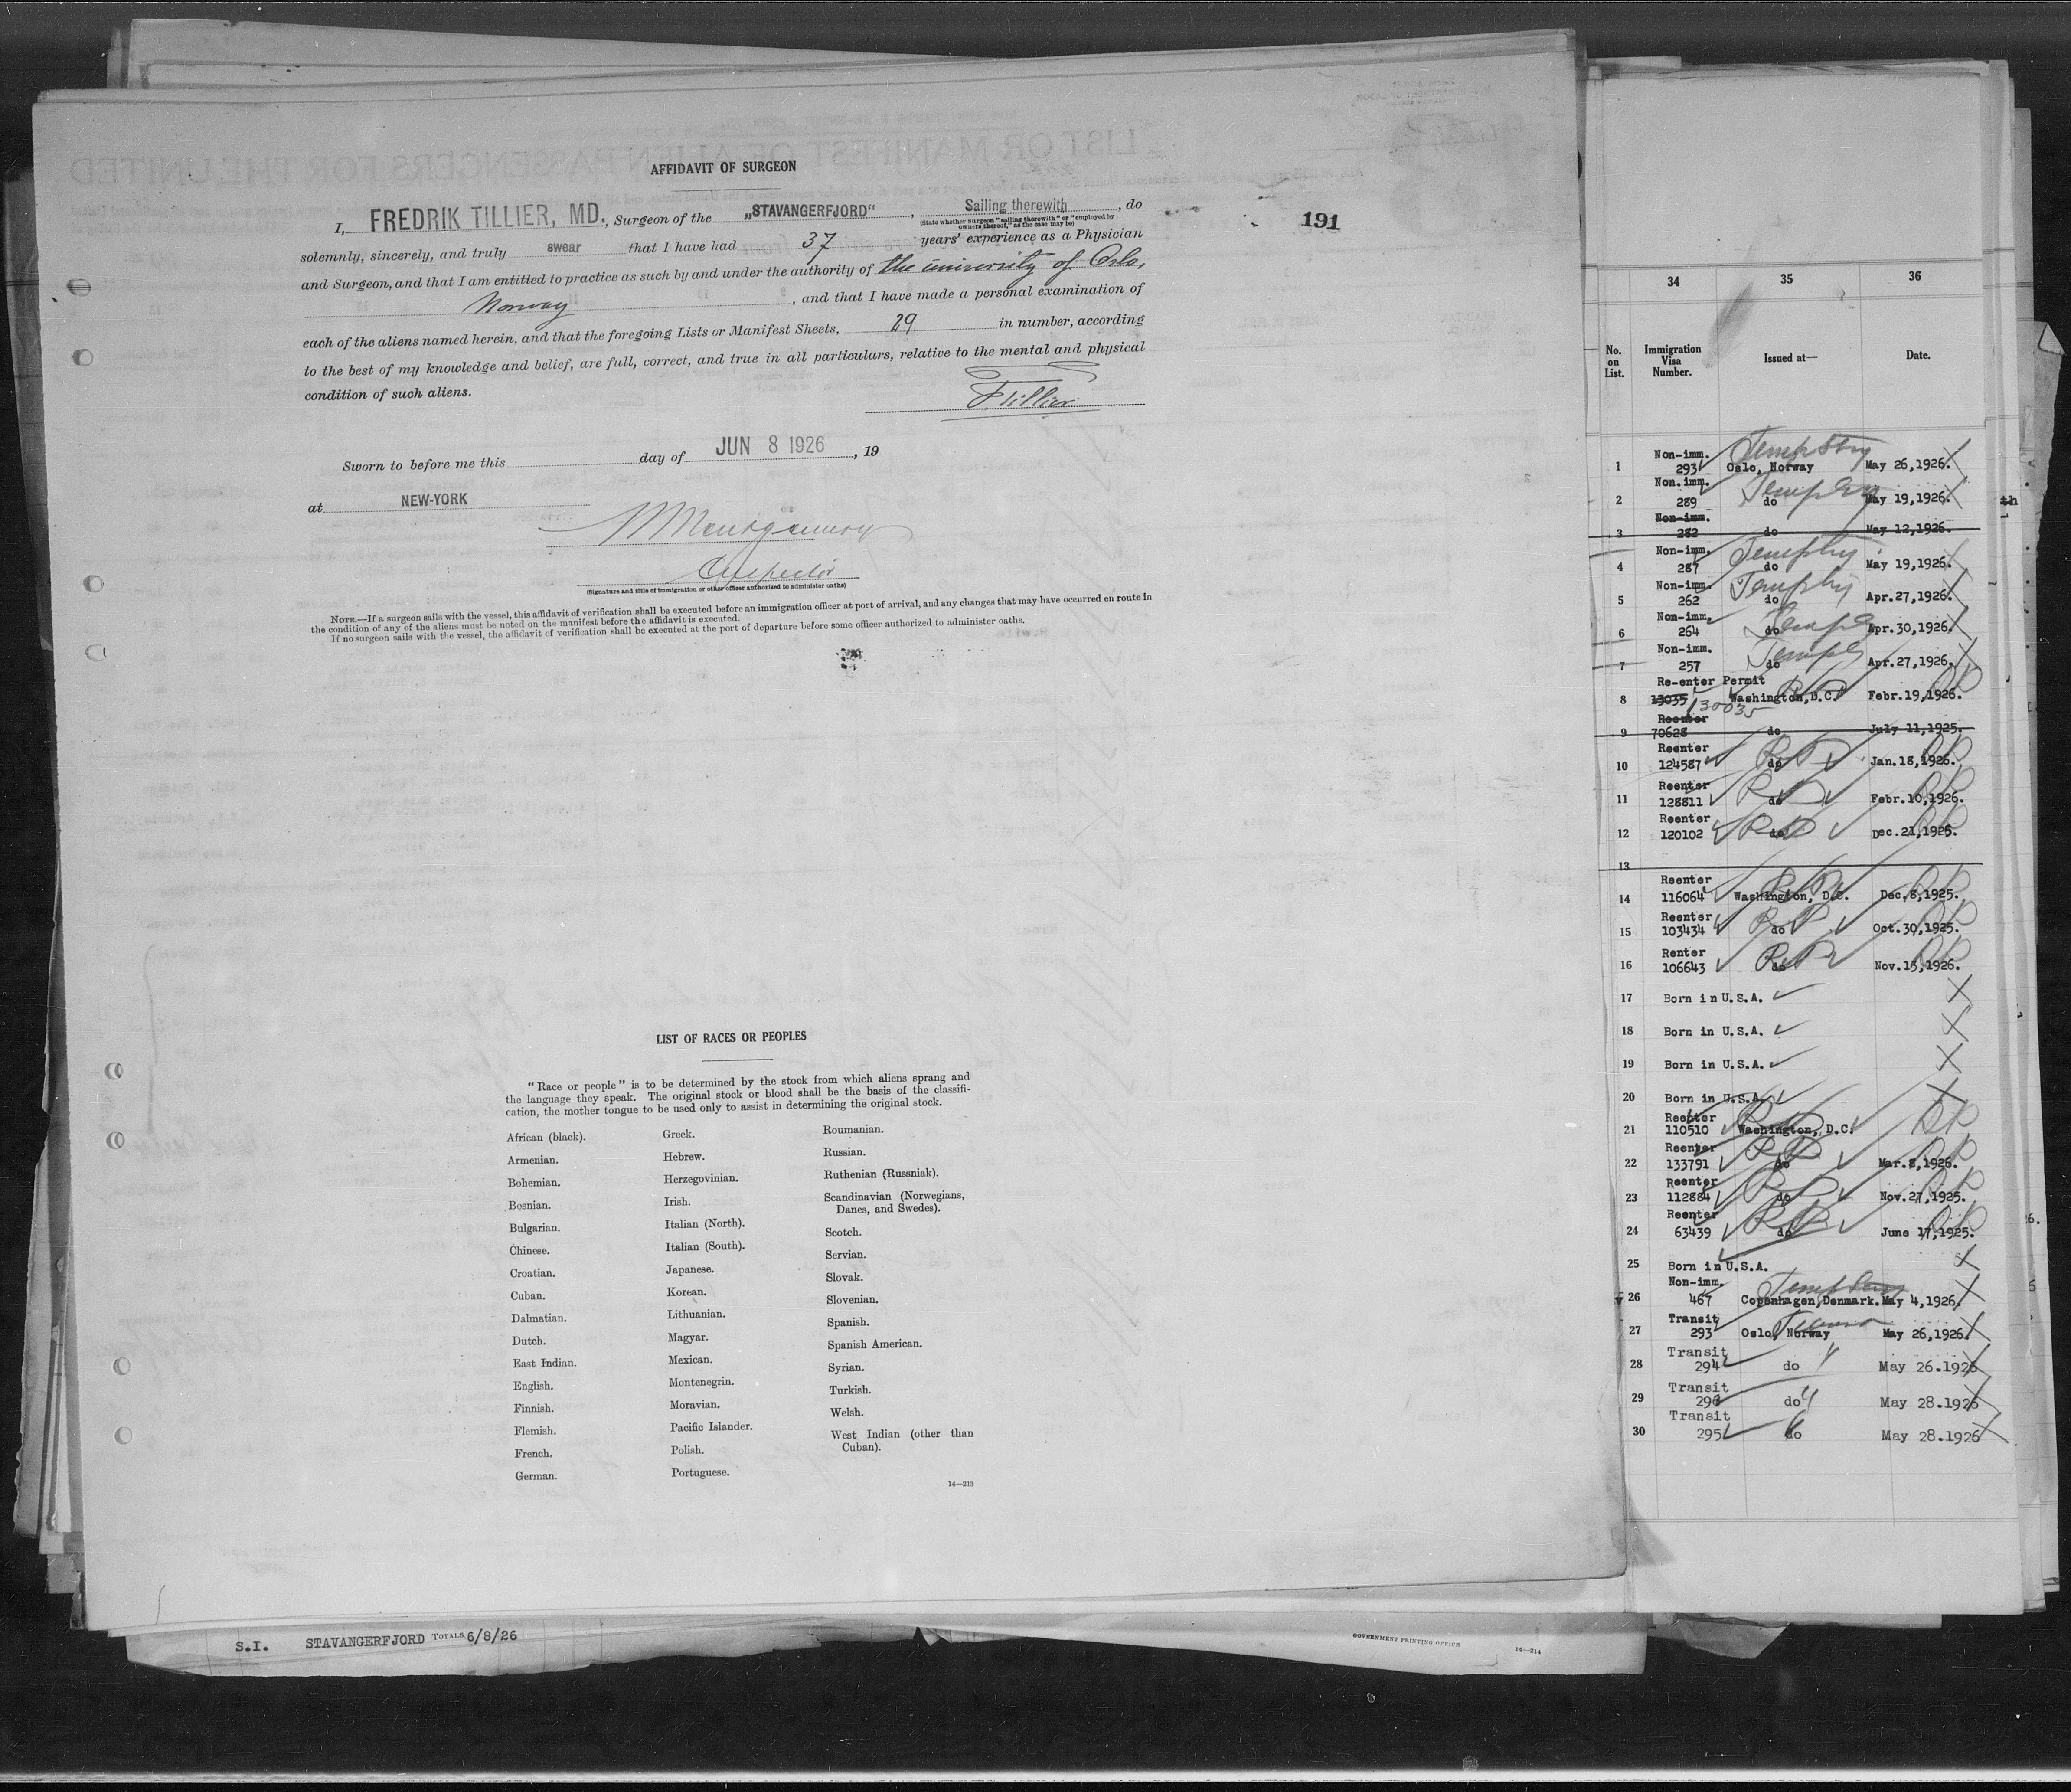 AFFIDAVIT OF SURGEON
I, FREDRIK TILLIER, MD., Surgeon of the „STAVANGERFJORD“, Sailing therewith, do
(State whether Surgeon "sailing therewith" or "employed by
owners thereof," as the case may be)
solemnly, sincerely, and truly swear that I have had 37 years' experience as a Physician
and Surgeon, and that I am entitled to practice as such by and under the authority of the university of Oslo,
Norway, and that I have made a personal examination of
each of the aliens named herein, and that the foregoing Lists or Manifest Sheets, 29 in number, according
to the best of my knowledge and belief, are full, correct, and true in all particulars, relative to the mental and physical
condition of such aliens.
F Tillier
Sworn to before me this day of JUN 8 1926, 19
at NEW-YORK
Montgomery
Inspector
(Signature and title of immigration or other officer authorized to administer oaths)
NOTE.—If a surgeon sails with the vessel, this affidavit of verification shall be executed before an immigration officer at port of arrival, and any changes that may have occurred en route in
the condition of any of the aliens must be noted on the manifest before the affidavit is executed.
If no surgeon sails with the vessel, the affidavit of verification shall be executed at the port of departure before some officer authorized to administer oaths.
LIST OF RACES OR PEOPLES
"Race or people" is to be determined by the stock from which aliens sprang and
the language they speak. The original stock or blood shall be the basis of the classifi-
cation, the mother tongue to be used only to assist in determining the original stock.
African (black).
Armenian.
Bohemian.
Bosnian.
Bulgarian.
Chinese.
Croatian.
Cuban.
Dalmatian.
Dutch.
East Indian.
English.
Finnish.
Flemish.
French.
German.
Greek.
Hebrew.
Herzegovinian.
Irish.
Italian (North).
Italian (South).
Japanese.
Korean.
Lithuanian.
Magyar.
Mexican.
Montenegrin.
Moravian.
Pacific Islander.
Polish.
Portuguese.
Roumanian.
Russian.
Ruthenian (Russniak).
Scandinavian (Norwegians,
Danes, and Swedes).
Scotch.
Servian.
Slovak.
Slovenian.
Spanish.
Spanish American.
Syrian.
Turkish.
Welsh.
West Indian (other than
Cuban).
14—213
191
34 35 36
No. on List. Immigration Visa Number. Issued at— Date.
1 Non-imm. 293 Oslo, Norway May 26,1926.
2 Non.imm. 289 do May 19,1926.
3 Non-imm. 282 do May 12,1926.
4 Non-imm. 287 do May 19,1926.
5 Non-imm. 262 do Apr.27,1926.
6 Non-imm. 264 do Apr.30,1926.
7 Non-imm. 257 do Apr.27,1926.
8 Re-enter Permit 13035 130035 Washington,D.C. Febr.19,1926.
9 Reenter 70628 do July 11,1925.
10 Reenter 124587 RP do Jan.18,1926.
11 Reenter 128811 RP do Febr.10,1926.
12 Reenter 120102 RP do Dec.21,1925.
13
14 Reenter 116064 RP Washington, D.C. Dec.8,1925.
15 Reenter 103434 RP do Oct.30,1925.
16 Renter 106643 RP do Nov.15,1926.
17 Born in U.S.A.
18 Born in U.S.A.
19 Born in U.S.A.
20 Born in U.S.A.
21 Reenter 110510 RP Washington, D.C.
22 Reenter 133791 RP do Mar.8,1926.
23 Reenter 112884 RP do Nov.27,1925.
24 Reenter 63439 RP do June 17,1925.
25 Born in U.S.A.
26 Non-imm. 467 Copenhagen,Denmark. May 4,1926.
27 Transit 293 Oslo, Norway May 26,1926.
28 Transit 294 do May 26.1926
29 Transit 296 do May 28.1926
30 Transit 295 do May 28.1926
S.I. STAVANGERFJORD TOTALS 6/8/26
GOVERNMENT PRINTING OFFICE 14—214